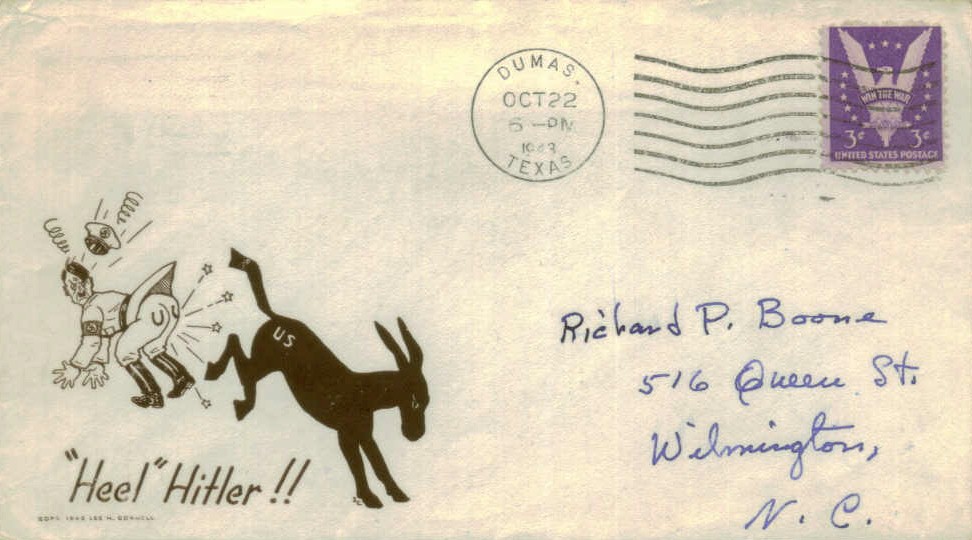 DUMAS.
OCT 22
6 - PM
1943
TEXAS
WIN THE WAR
3¢ 3¢
UNITED STATES POSTAGE
US
"Heel" Hitler!!
Richard P. Boone
516 Queen St.
Wilmington,
N. C.